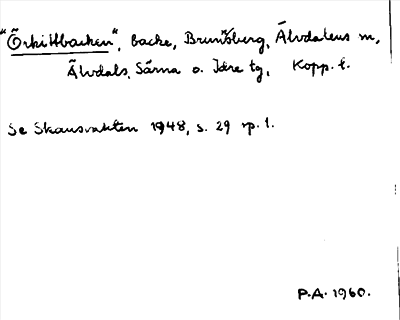 "Örkittbacken", backe, Brunnsberg, Älvdalens sn,
Älvdals, Särna o. Idre tg, Kopp. l.
Se Skansvakten 1948, s. 29 sp. 1.
P.A. 1960.